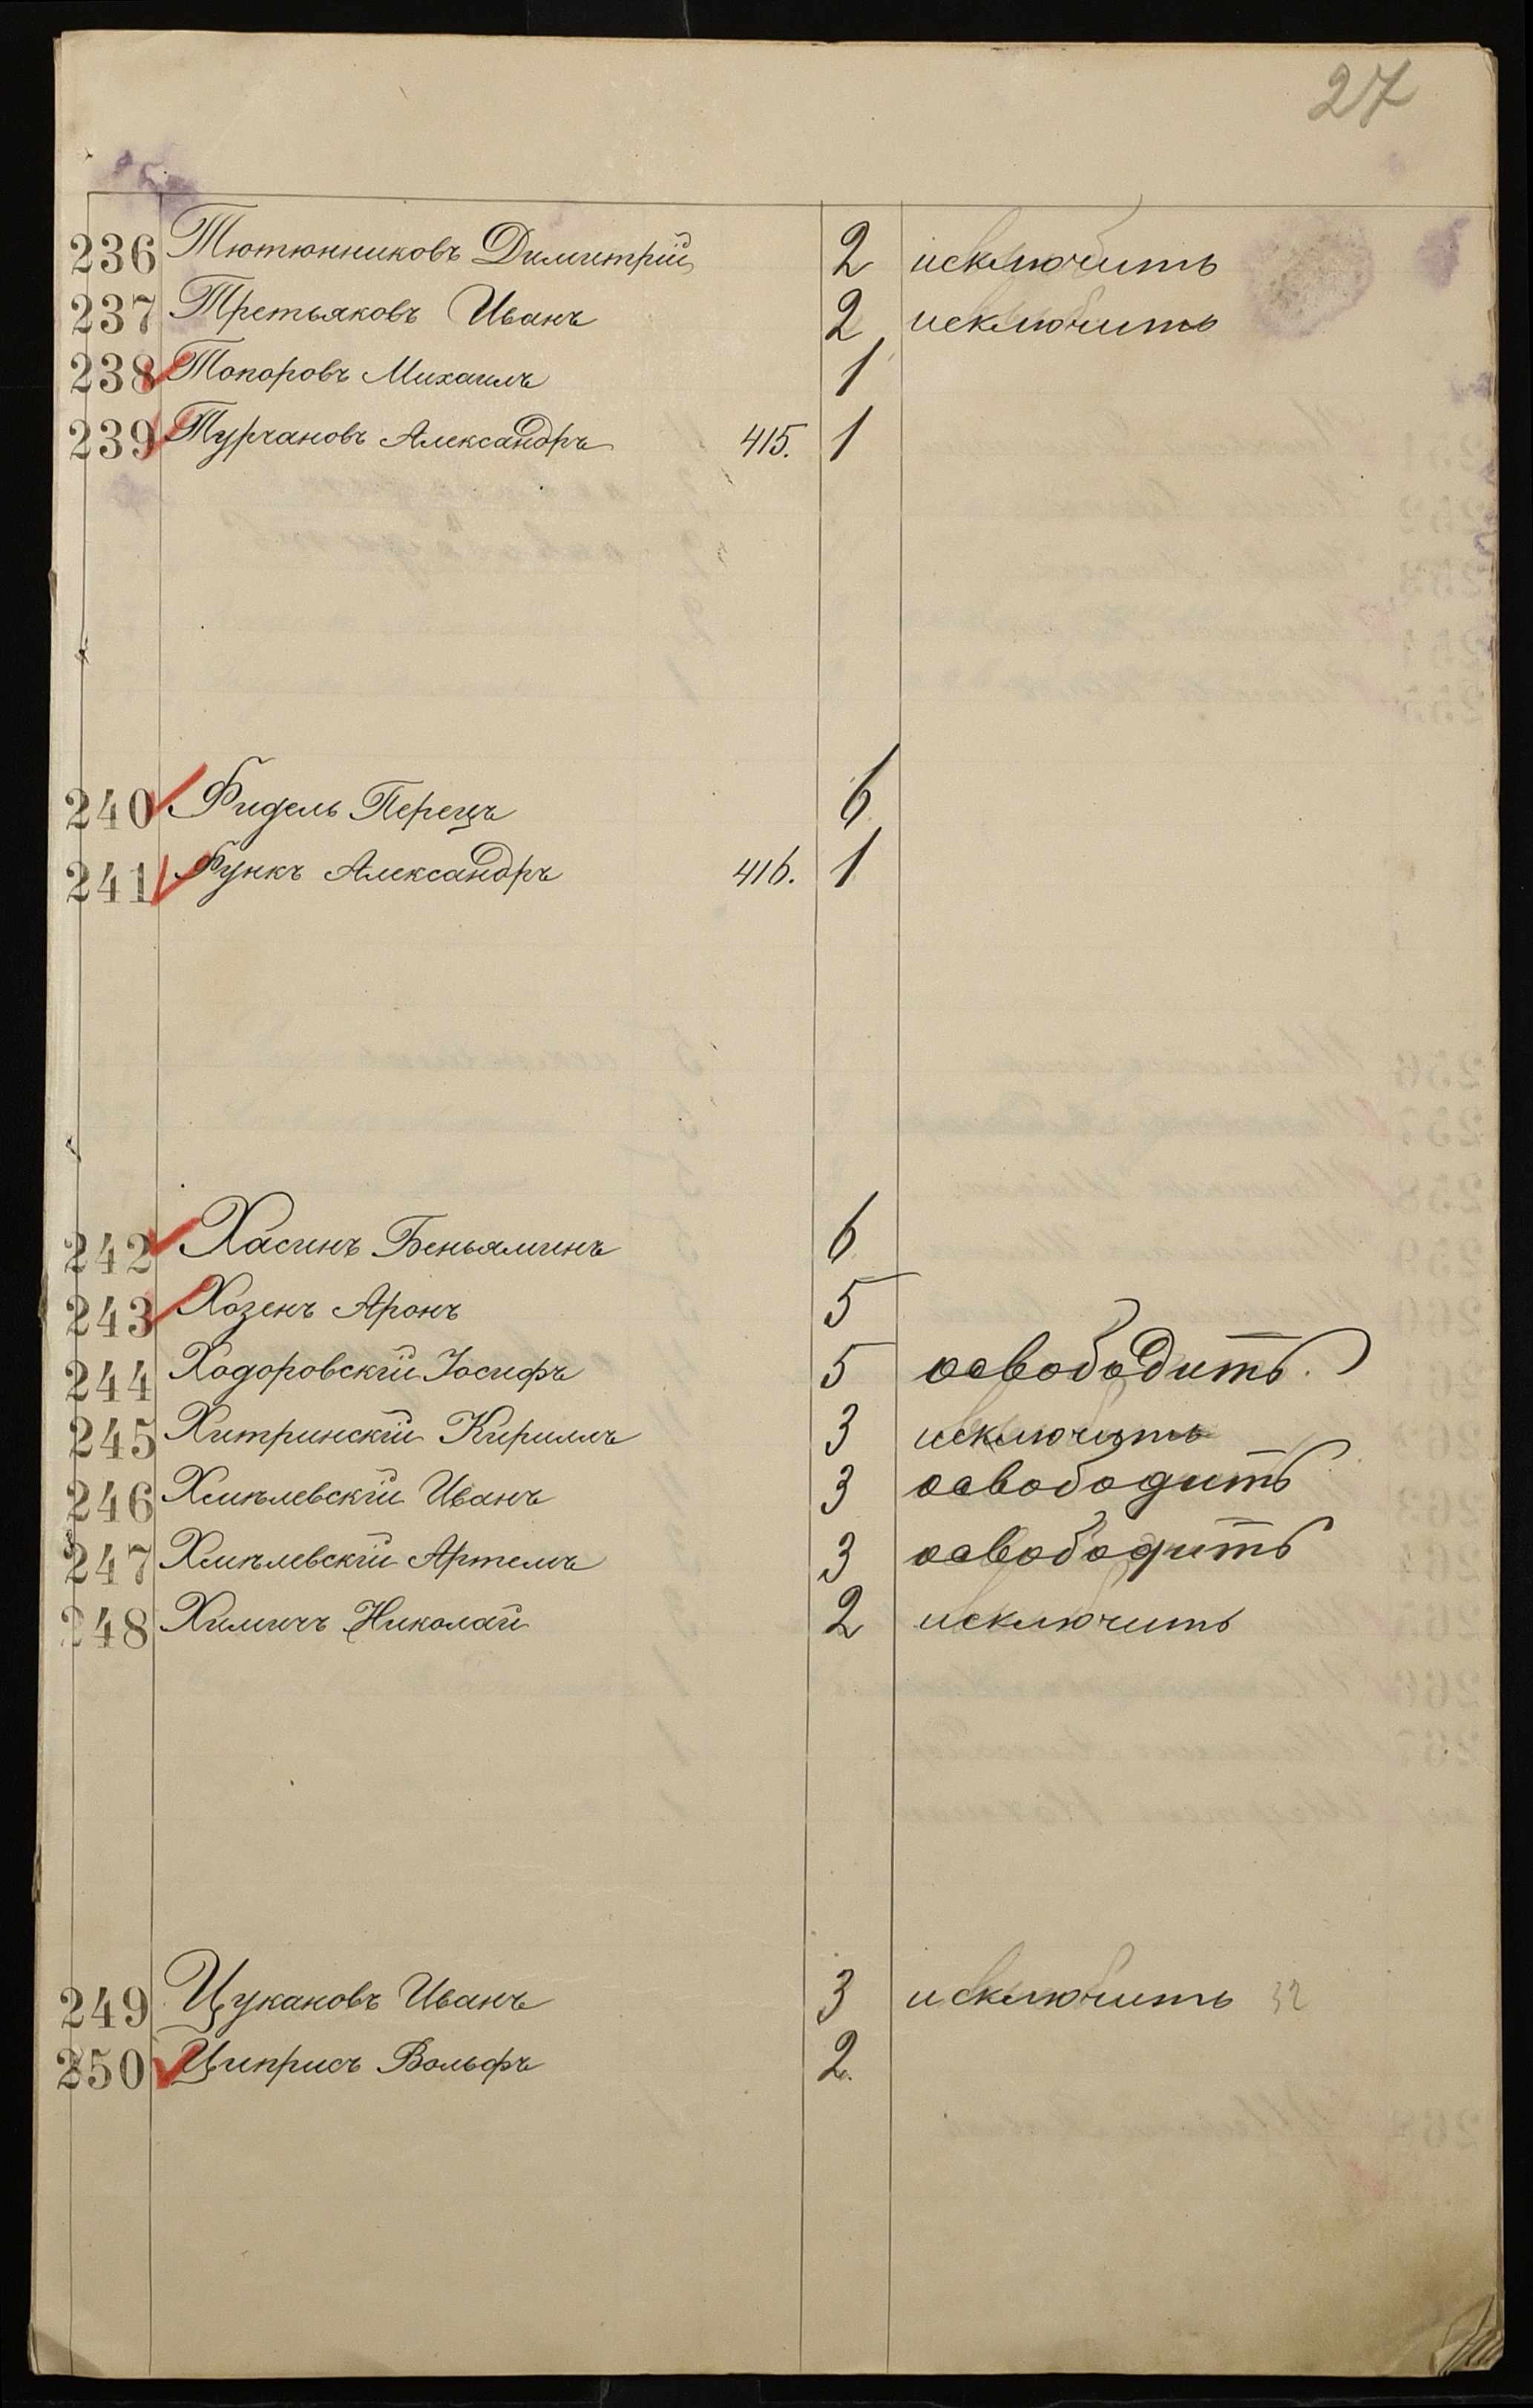 27
236 Тютюнниковъ Димитрій 2 исключить
237 Третьяковъ Иванъ 2 исключить
238 Топоровъ Михаилъ 1
239 Турчановъ Александръ 415. 1
240 Фидель Перецъ 6
241 Функъ Александръ 416. 1
242 Хасинъ Беньяминъ 6
243 Хозенъ Аронъ 5
244 Ходоровскій Іосифъ 5 освободить.
245 Хитринскій Кириллъ 3 исключить
246 Хмѣлевскій Иванъ 3 освободить
247 Хмѣлевскій Артемъ 3 освободить
248 Химичъ Николай 2 исключить
249 Цукановъ Иванъ 3 исключить 32
250 Циприсъ Вольфъ 2.